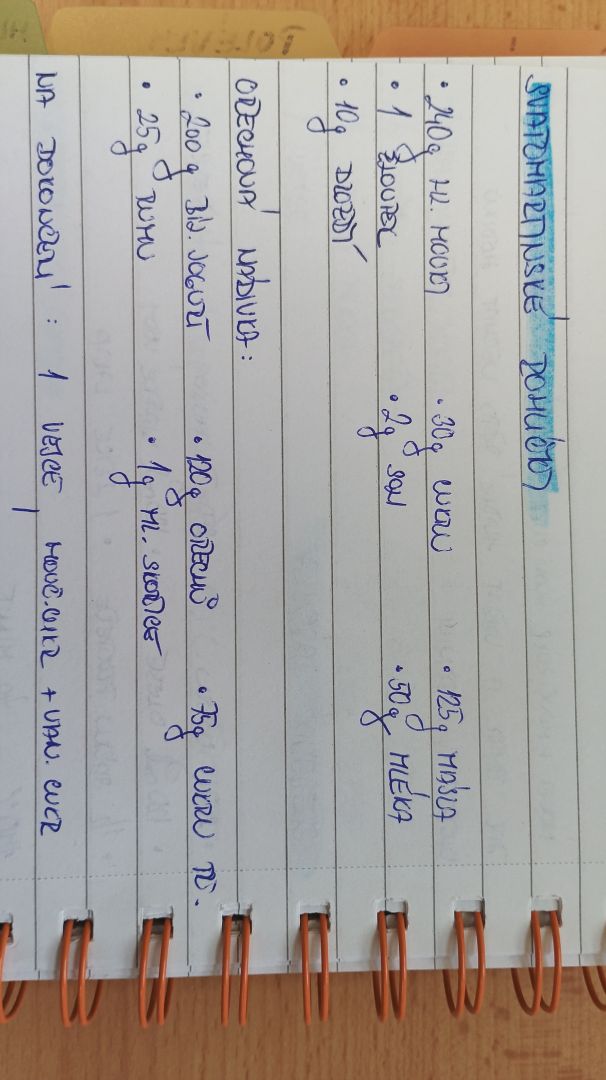 SVATOMARTINSKÉ ROHLÍČKY
• 240g HL. MOUKY • 30g CUKRU • 125g MÁSLA
• 1 ŽLOUTEK • 2g SOLI • 50g MLÉKA
• 10g DROŽDÍ
OŘECHOVÁ NÁDIVKA:
• 200g BÍL. JOGURT • 120g OŘECHŮ • 75g CUKRU TŘ.
• 25g RUMU • 1g ML. SKOŘICE
NA DOKONČENÍ: 1 VEJCE, MOUČ. CUKR + VAN. CUKR